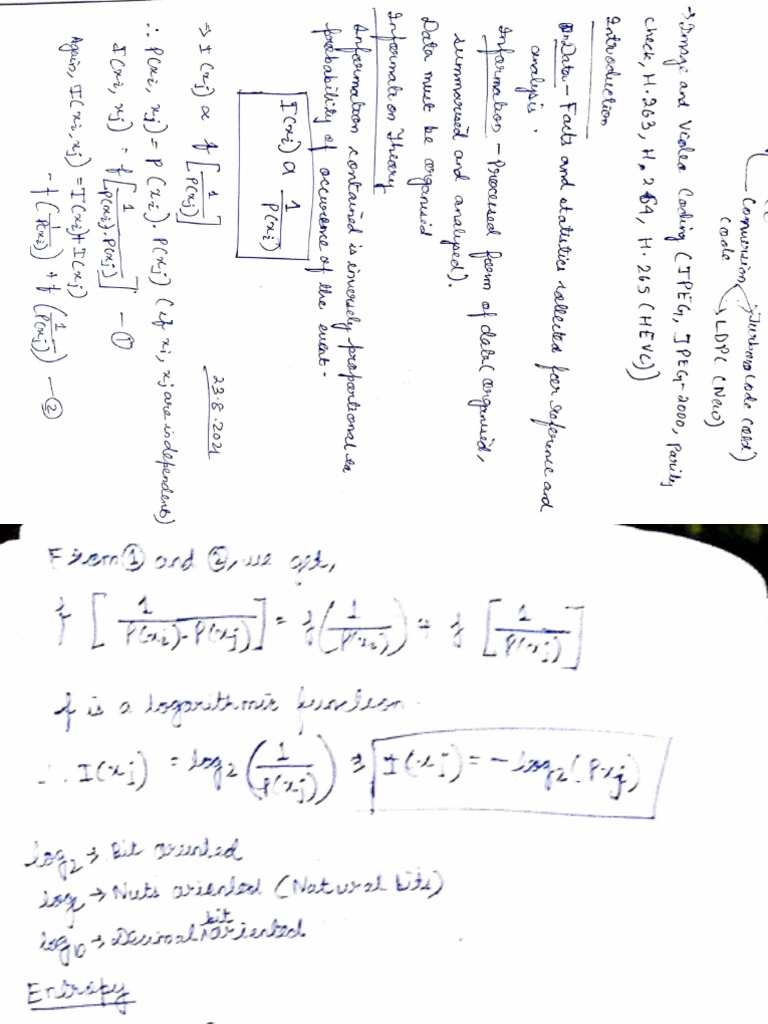 Conversion
code
Turbo code (old)
LDPC (New)
→ Image and Video Coding (JPEG, JPEG-2000, Parity
check, H.263, H.264, H.265 (HEVC))
Introduction
Data - Facts and statistics collected for reference and
analysis.
Information - Processed form of data (organised,
summarised and analysed).
Data must be organised
Information Theory
Information contained is inversely proportional to
probability of occurence of the event.
I(xi) α 1/P(xi)
23.8.2021
⇒ I(xj) α f[1/P(xj)]
∴ P(xi, xj) = P(xi).P(xj) (if xi, xj are independents)
I(xi, xj) = f[1/P(xi).P(xj)] - ①
Again, I(xi, xj) = I(xi) + I(xj)
- f(1/P(xi)) + f(1/P(xj)) - ②
From ① and ②, we get,
f[1/P(xi).P(xj)] = f(1/P(xi)) + f[1/P(xj)]
f is a logarithmic function.
∴ I(xj) = log2(1/P(xj)) ⇒ I(xj) = -log2(Pxj)
log2 → Bit oriented
loge → Nuts oriented (Natural bits)
log10 → Decimal bit oriented
Entropy